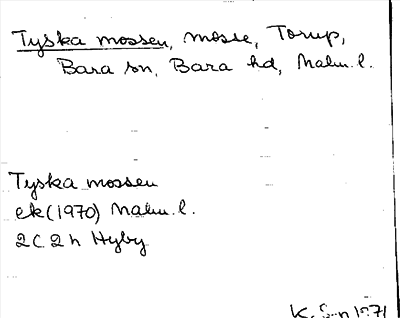 Tyska mossen, mosse, Torup,
Bara sn, Bara hd, Malm. l.
Tyska mossen
ek (1970) Malm. l.
2C 2h Hyby